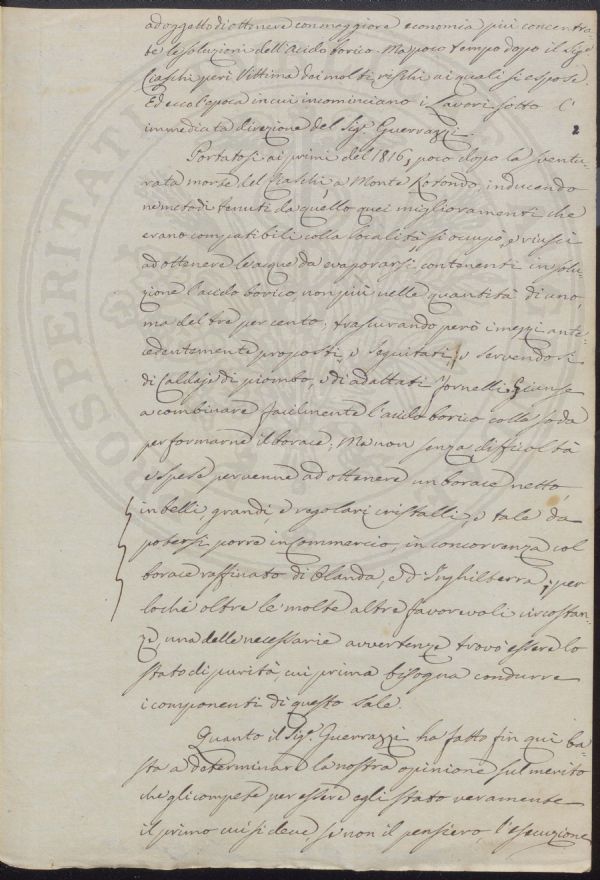 ad oggetto di ottenere con maggiore economia più concentra-
te le soluzioni dell'acido borico. Ma poco tempo dopo il Sigr.
Ciaschi perì Vittima dai molti rischi ai quali si espose
Ed ecco l'epoca in cui incominciano i Lavori sotto l'
immediata direzione del Sigr. Guerrazzi.
2
Portatosi ai primi del 1816, poco dopo la sventu-
rata morte del Ciaschi a Monte Rotondo, inducendo
ne metodi tenuti da quello quei miglioramenti che
erano compatibili colla località si occupò, e riuscì
ad ottenere le acque da evaporarsi contenenti in solu-
zione l'acido borico, non più nelle quantità di uno,
ma del tre per cento; trascurando però i mezzi ante-
cedentemente proposti, e seguitati, e servendosi
di Caldaje di piombo, e di adattati Fornelli. Giunse
a combinare facilmente l'acido borico colla soda
per formarne il borace; Ma non senza difficoltà
e spese pervenne ad ottenere un borace netto
in belli, grandi, e regolari cristalli, e tale da
potersi porre in Commercio, in concorrenza col
borace raffinato di Olanda, e d'Inghilterra; per
lochè oltre le molte altre favorevoli circostan-
ze, una delle necessarie avvertenze trovò essere lo
stato di purità, cui prima bisogna condurre
i componenti di questo Sale.
Quanto il Sigr. Guerrazzi ha fatto fin qui ba-
sta a determinare la nostra opinione sul merito
che gli compete per essere egli stato veramente
il primo cui si deve, se non il pensiero l'esecuzione